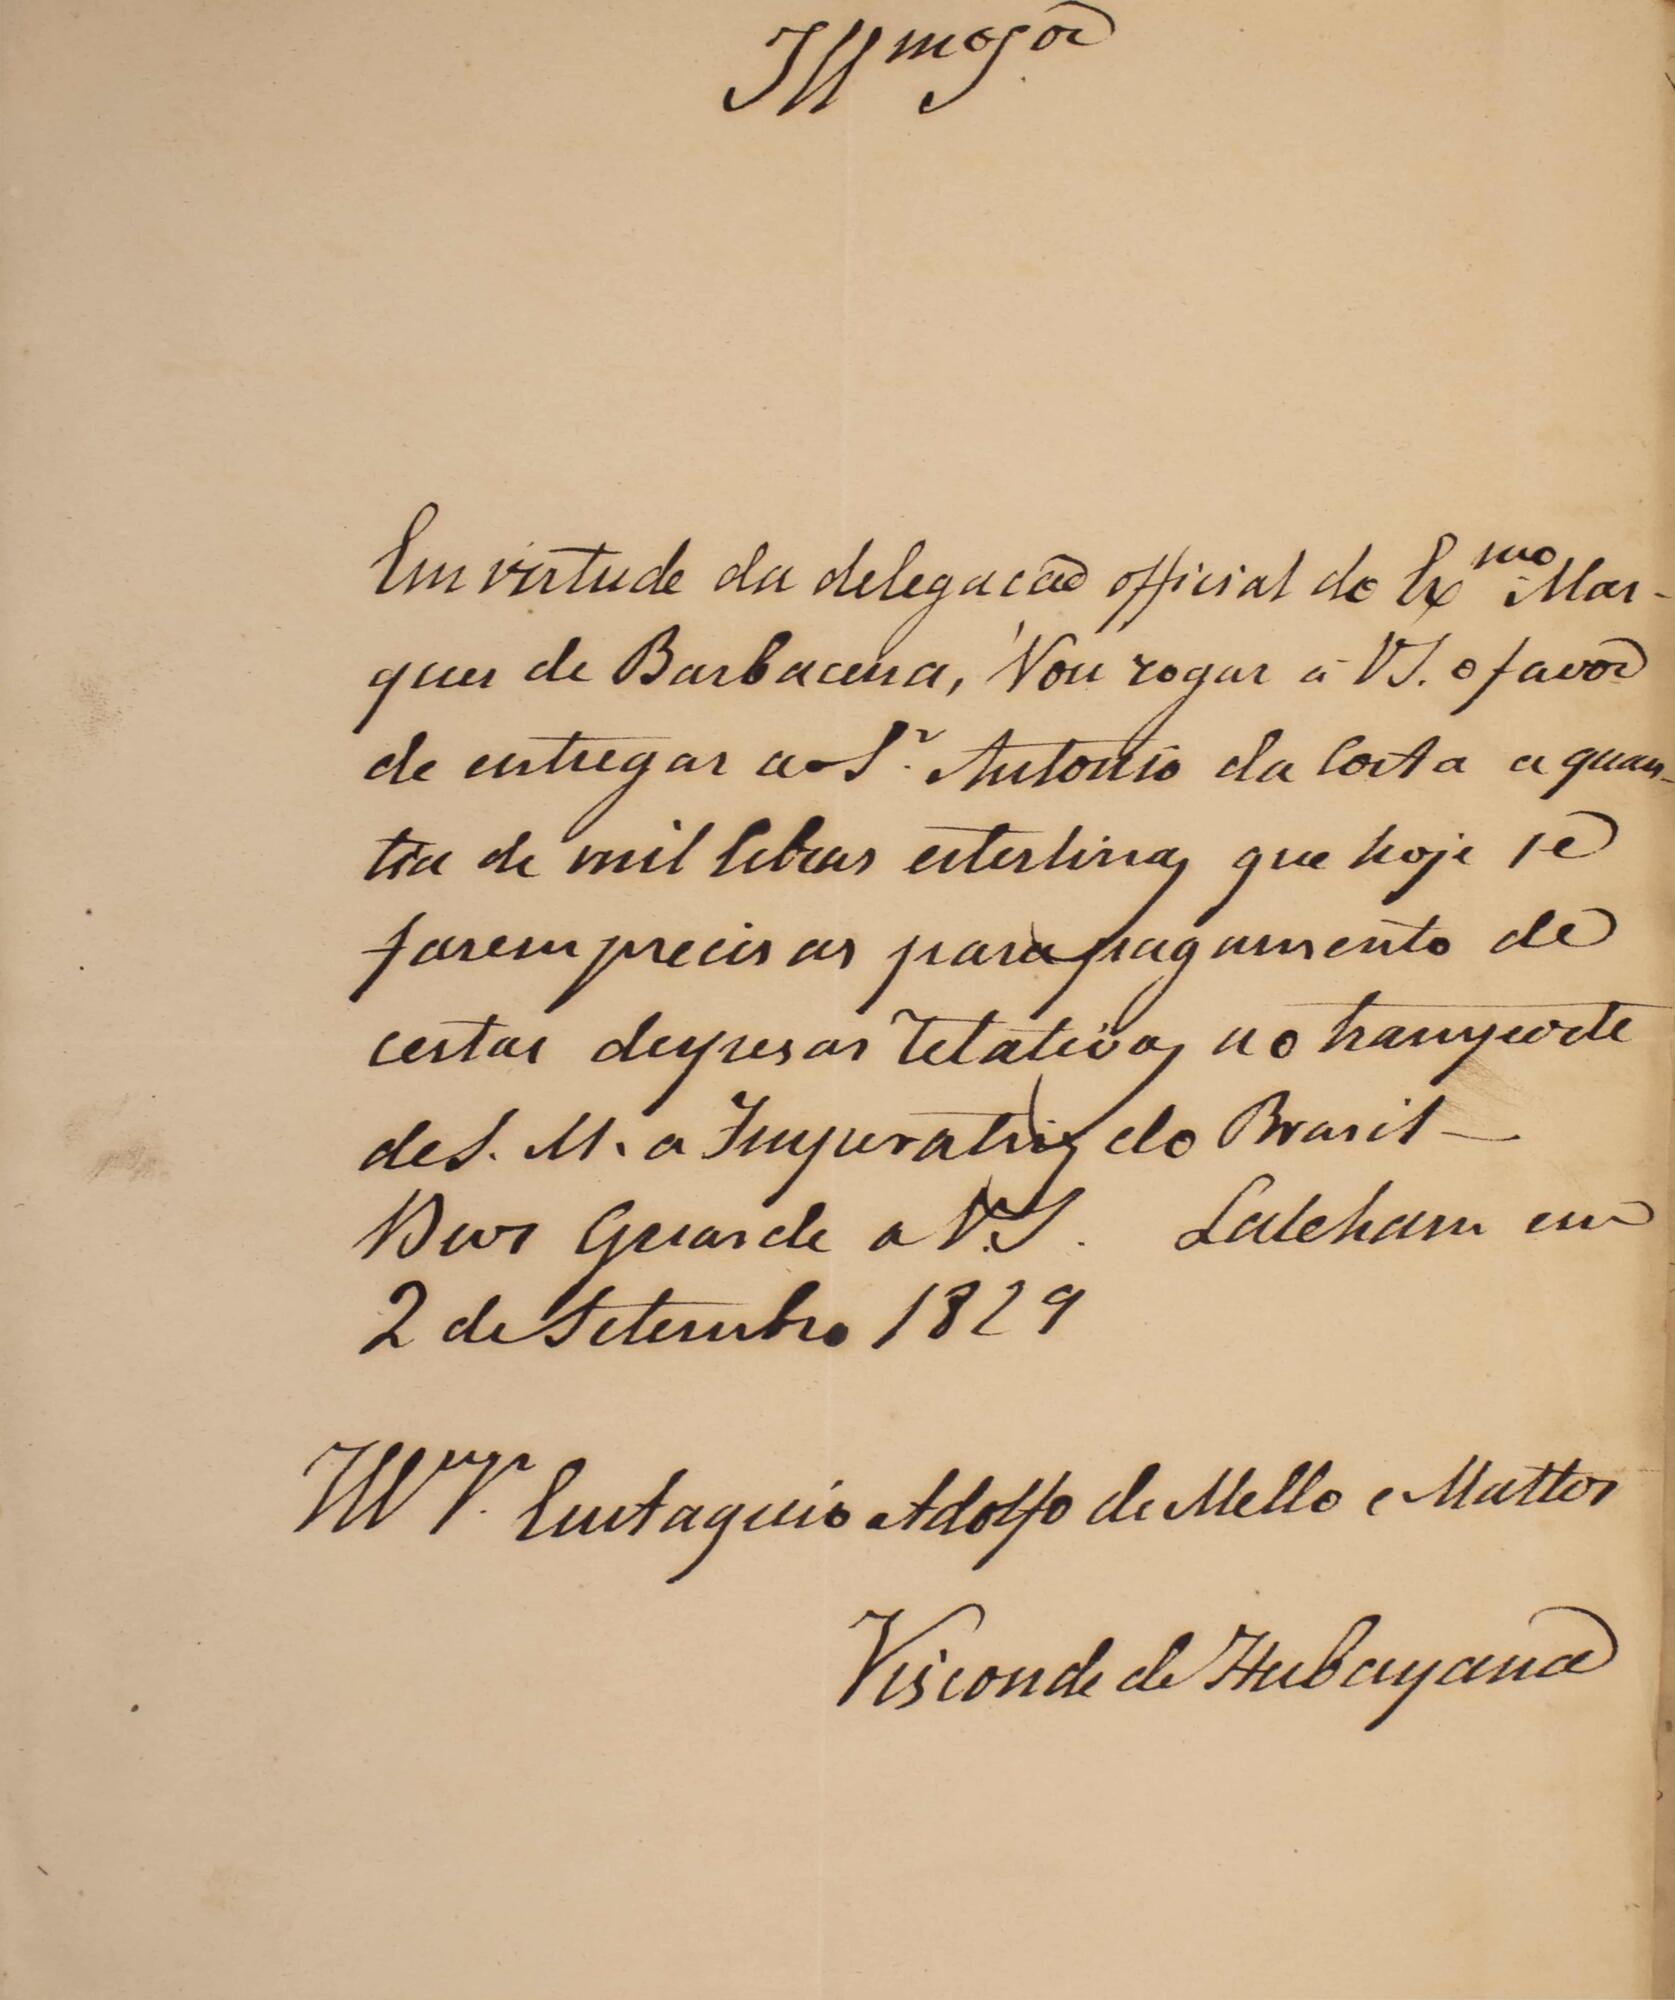 Illmo Sor
Em virtude da delegacão official do Exmo Mar-
ques de Barbacena, Vou rogar a VS. o favor
de entregar ao Sr. Antonio da Costa a quan-
tia de mil libras esterlinas que hoje se
fasem precisas para pagamento de
certas despesas relativas ao transporte
de S. M. a Imperatriz do Brasil —
Deos Guarde a V.S. Laleham em
2 de Setembro 1829
Eustaquio Adolfo de Mello e Mattos
Visconde de Itabayana